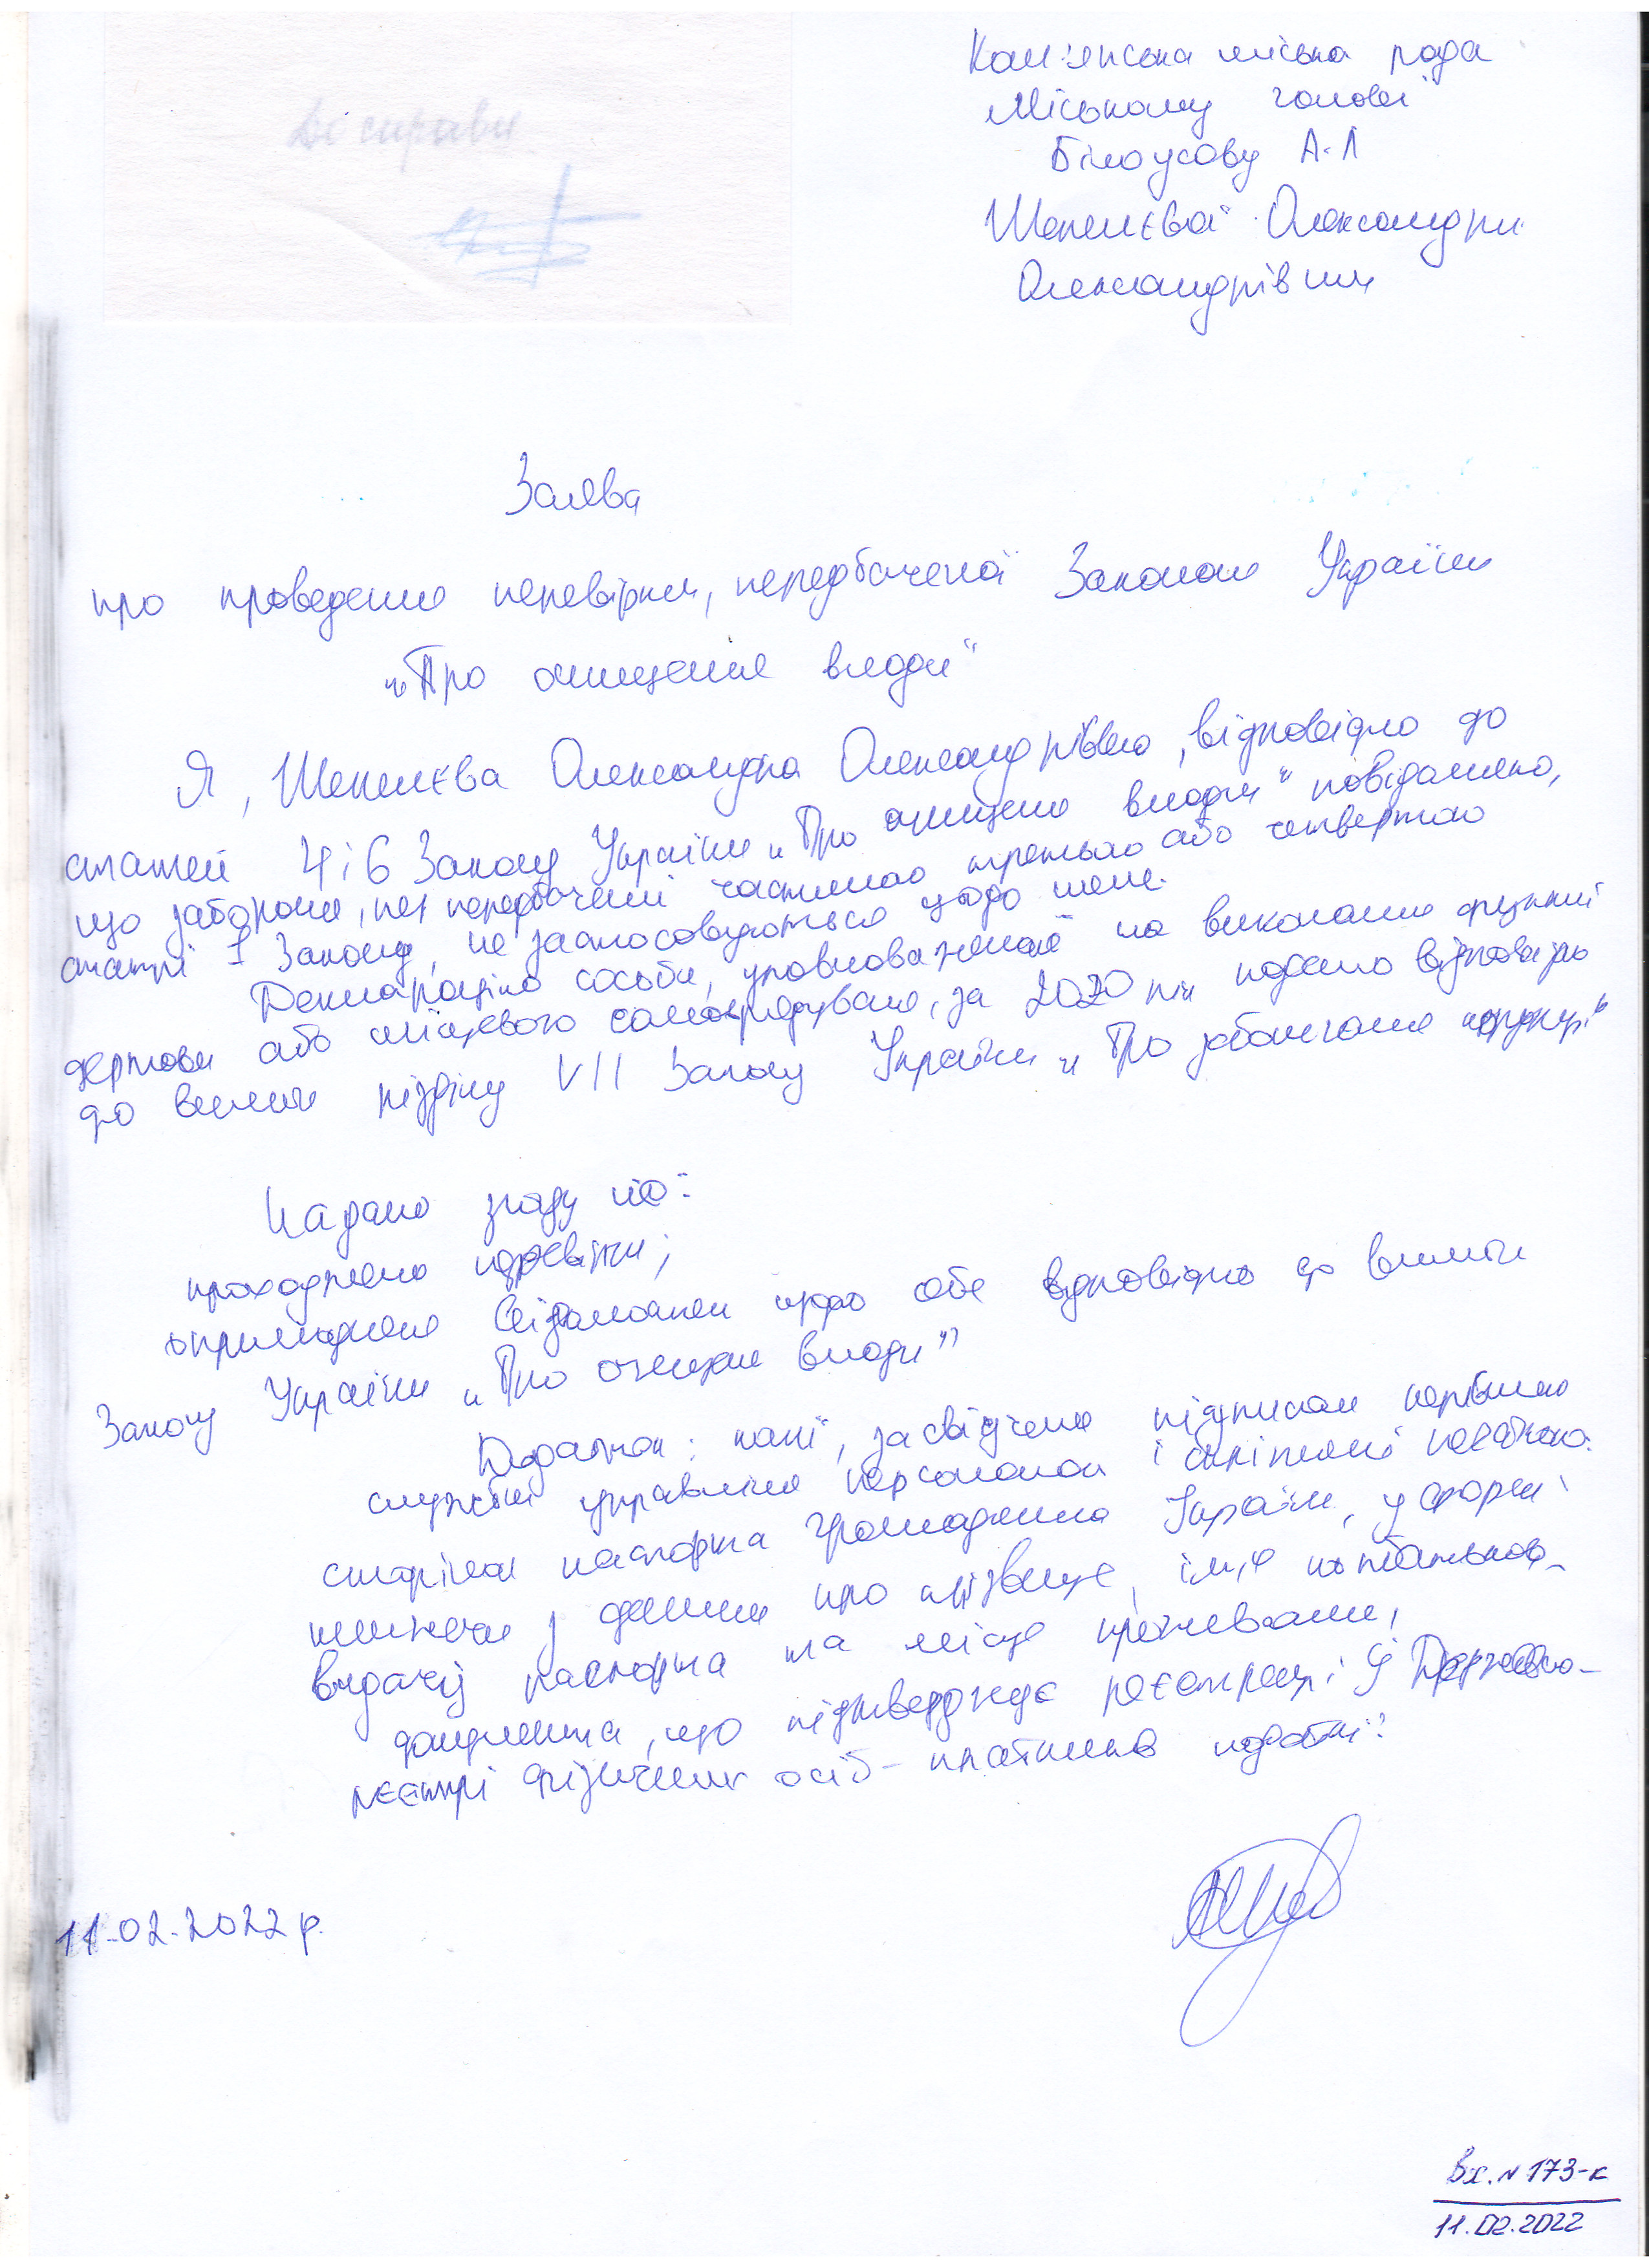 До справи
Кам'янська міська рада
Міському голові
Білоусову А.Л
Шепелєвої Олександри
Олександрівни
Заява
про проведення перевірки, передбаченої Законом України
„Про очищення влади"
Я, Шепелєва Олександра Олександрівна, відповідно до
статей 4 і 6 Закону України „Про очищення влади" повідомляю,
що заборони, передбачені частиною третьою або четвертою
статті 1 Закону, не застосовуються щодо мене.
Декларацію особи, уповноваженої на виконання функцій
держави або місцевого самоврядування, за 2020 рік подано відповідно
до вимог розділу VII Закону України „Про запобігання корупції"
Надаю згоду на:
проходження перевірки;
оприлюднення відомостей щодо себе відповідно до вимог
Закону України „Про очищення влади"
Додаток: копії, засвідчені підписом керівника
служби управління персоналом і скріплені печаткою:
сторінок паспорта громадянина України, у формі
книжечки з даними про прізвище, ім'я по батькові
видачу паспорта та місце проживання,
документа, що підтверджує реєстрацію у Державно-
реєстрі фізичних осіб - платників податків.
11.02.2022 р.
Вх. № 173-к
11.02.2022